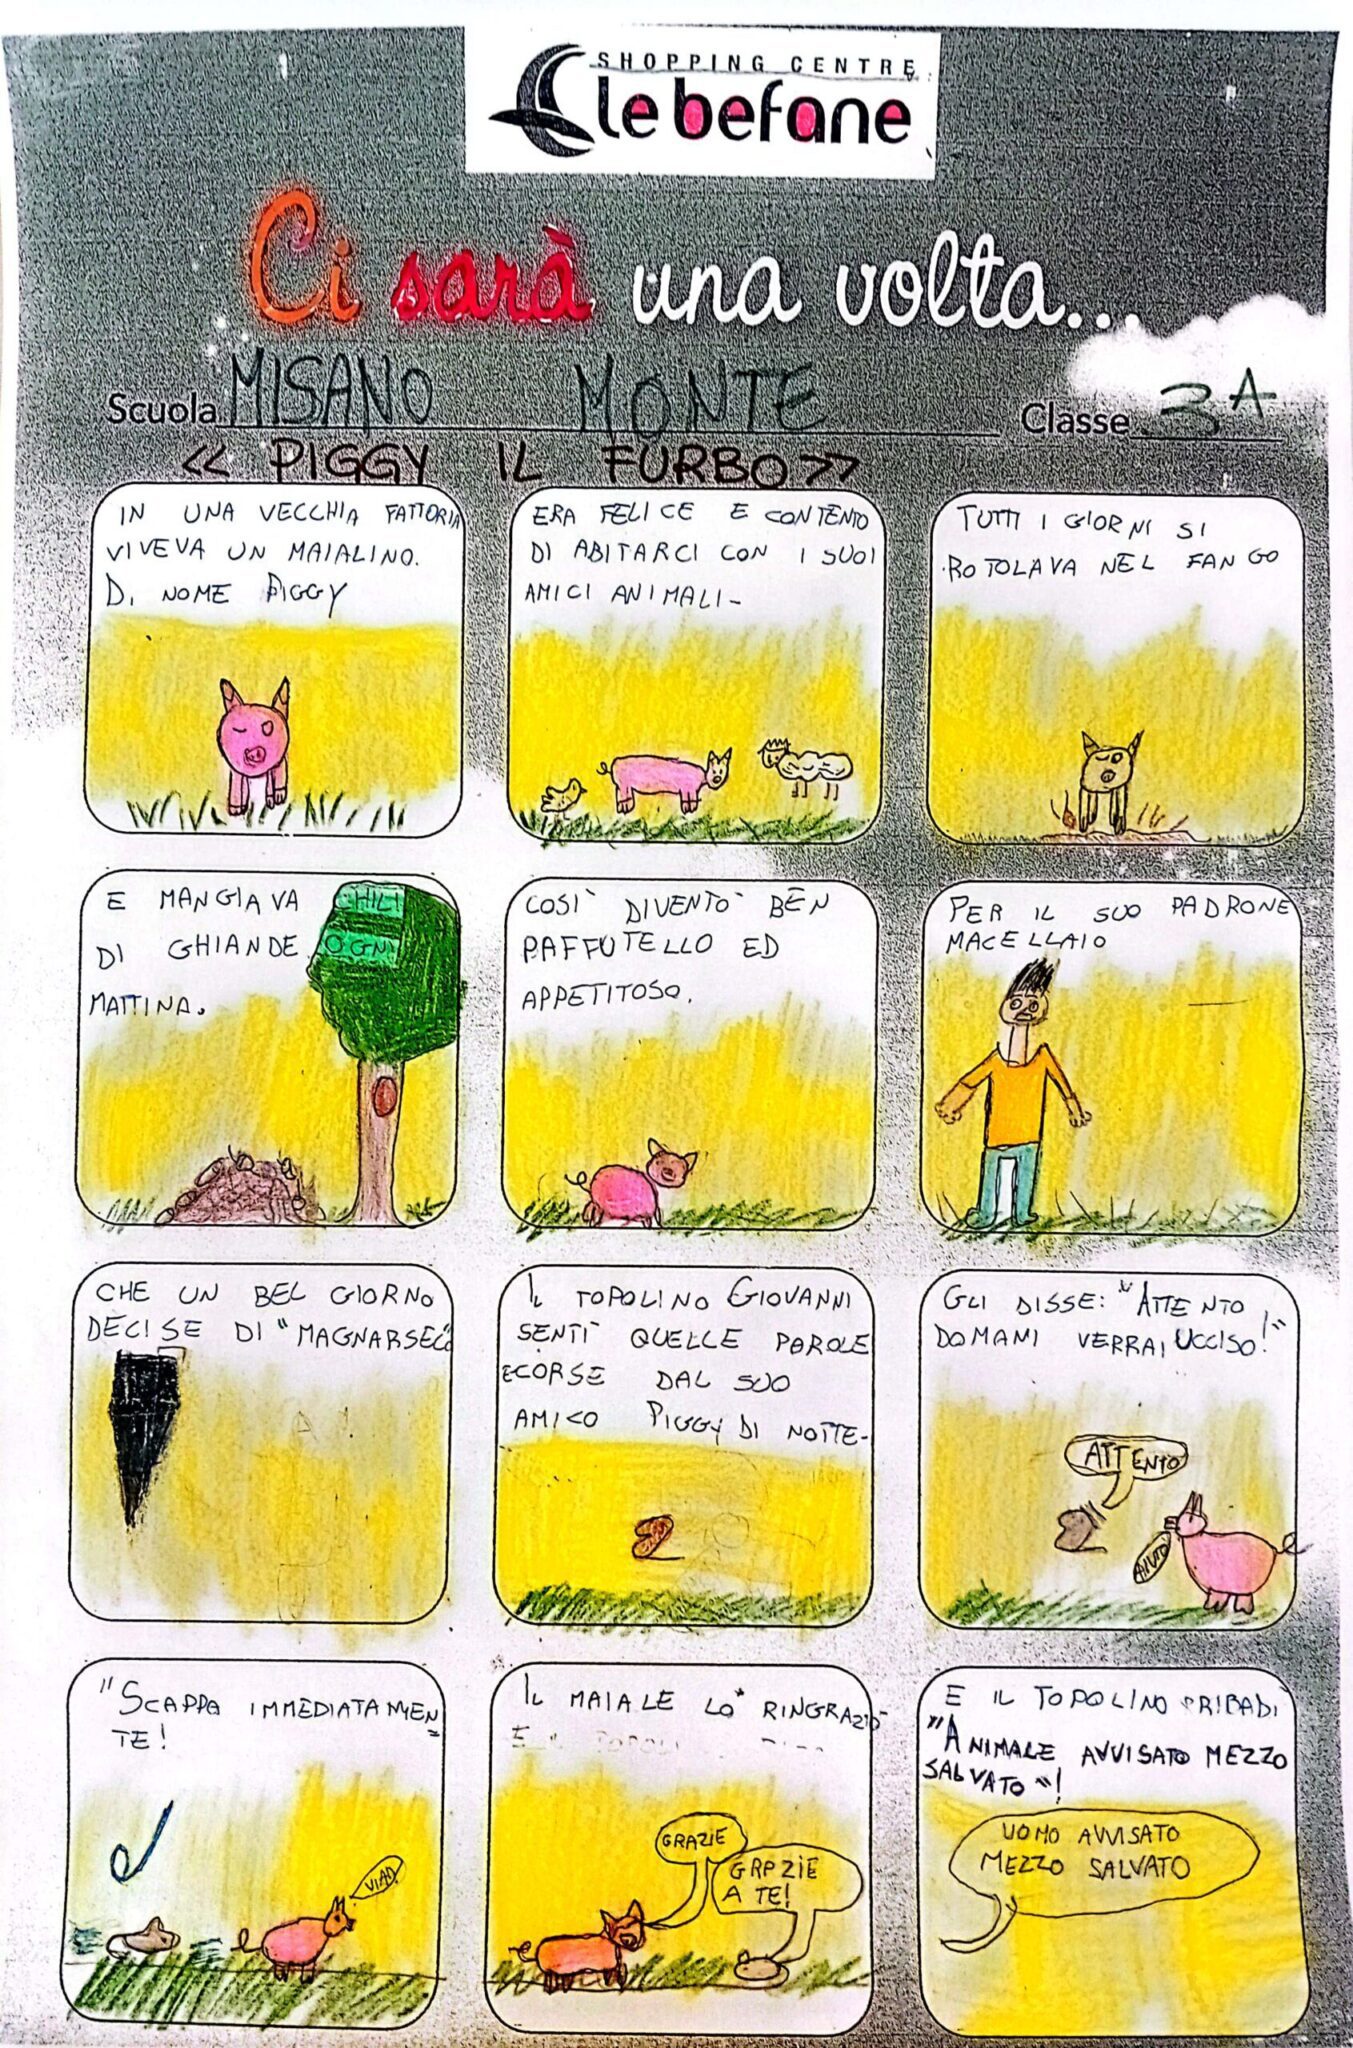 SHOPPING CENTRE
le befane
Ci sarà una volta...
Scuola MISANO MONTE Classe 3A
<< PIGGY IL FURBO>>
IN UNA VECCHIA FATTORIA
VIVEVA UN MAIALINO.
DI NOME PIGGY
ERA FELICE E CONTENTO
DI ABITARCI CON I SUOI
AMICI ANIMALI-
TUTTI I GIORNI SI
ROTOLAVA NEL FANGO
E MANGIAVA CHILI
DI GHIANDE OGNI
MATTINA.
COSÌ DIVENTÒ BEN
PAFFUTELLO ED
APPETITOSO.
PER IL SUO PADRONE
MACELLAIO
CHE UN BEL GIORNO
DECISE DI "MAGNARSELO"
IL TOPOLINO GIOVANNI
SENTÌ QUELLE PAROLE
E CORSE DAL SUO
AMICO PIGGY DI NOTTE-
GLI DISSE: "ATTENTO
DOMANI VERRAI UCCISO!"
ATTENTO
AIUTO
"SCAPPA IMMEDIATAMEN=
TE!
VIAD!
IL MAIALE LO RINGRAZIÒ
GRAZIE
GRAZIE
A TE!
E IL TOPOLINO RIBADÌ
"ANIMALE AVVISATO MEZZO
SALVATO"!
UOMO AVVISATO
MEZZO SALVATO